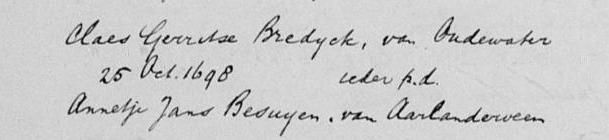 Claes Gerritse Bredyck, van Oudewater
25 Oct. 1698 ieder p.d.
Annetje Jans Besuyen, van Aarlanderveen